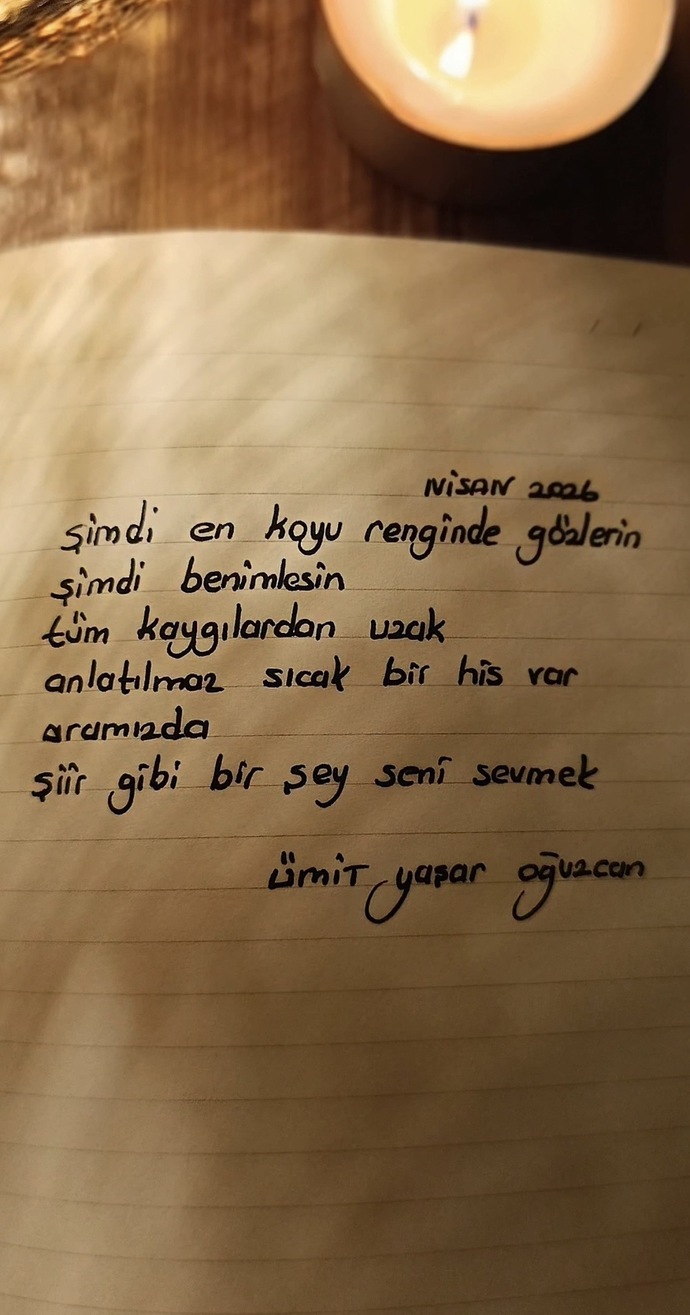 NİSAN 2026
şimdi en koyu renginde gözlerin
şimdi benimlesin
tüm kaygılardan uzak
anlatılmaz sıcak bir his var
aramızda
şiir gibi bir şey seni sevmek
ÜmiT yaşar oğuzcan